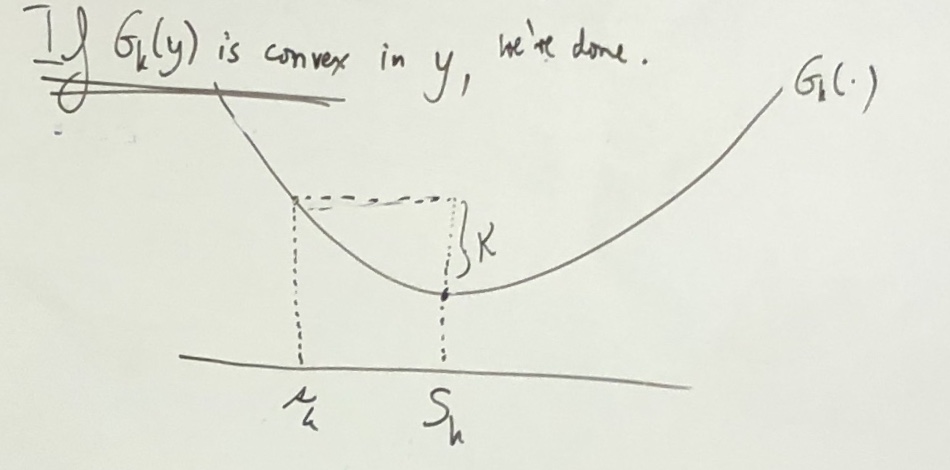 If G_k(y) is convex in y, we're done.
G_k(·)
K
s_k
S_k